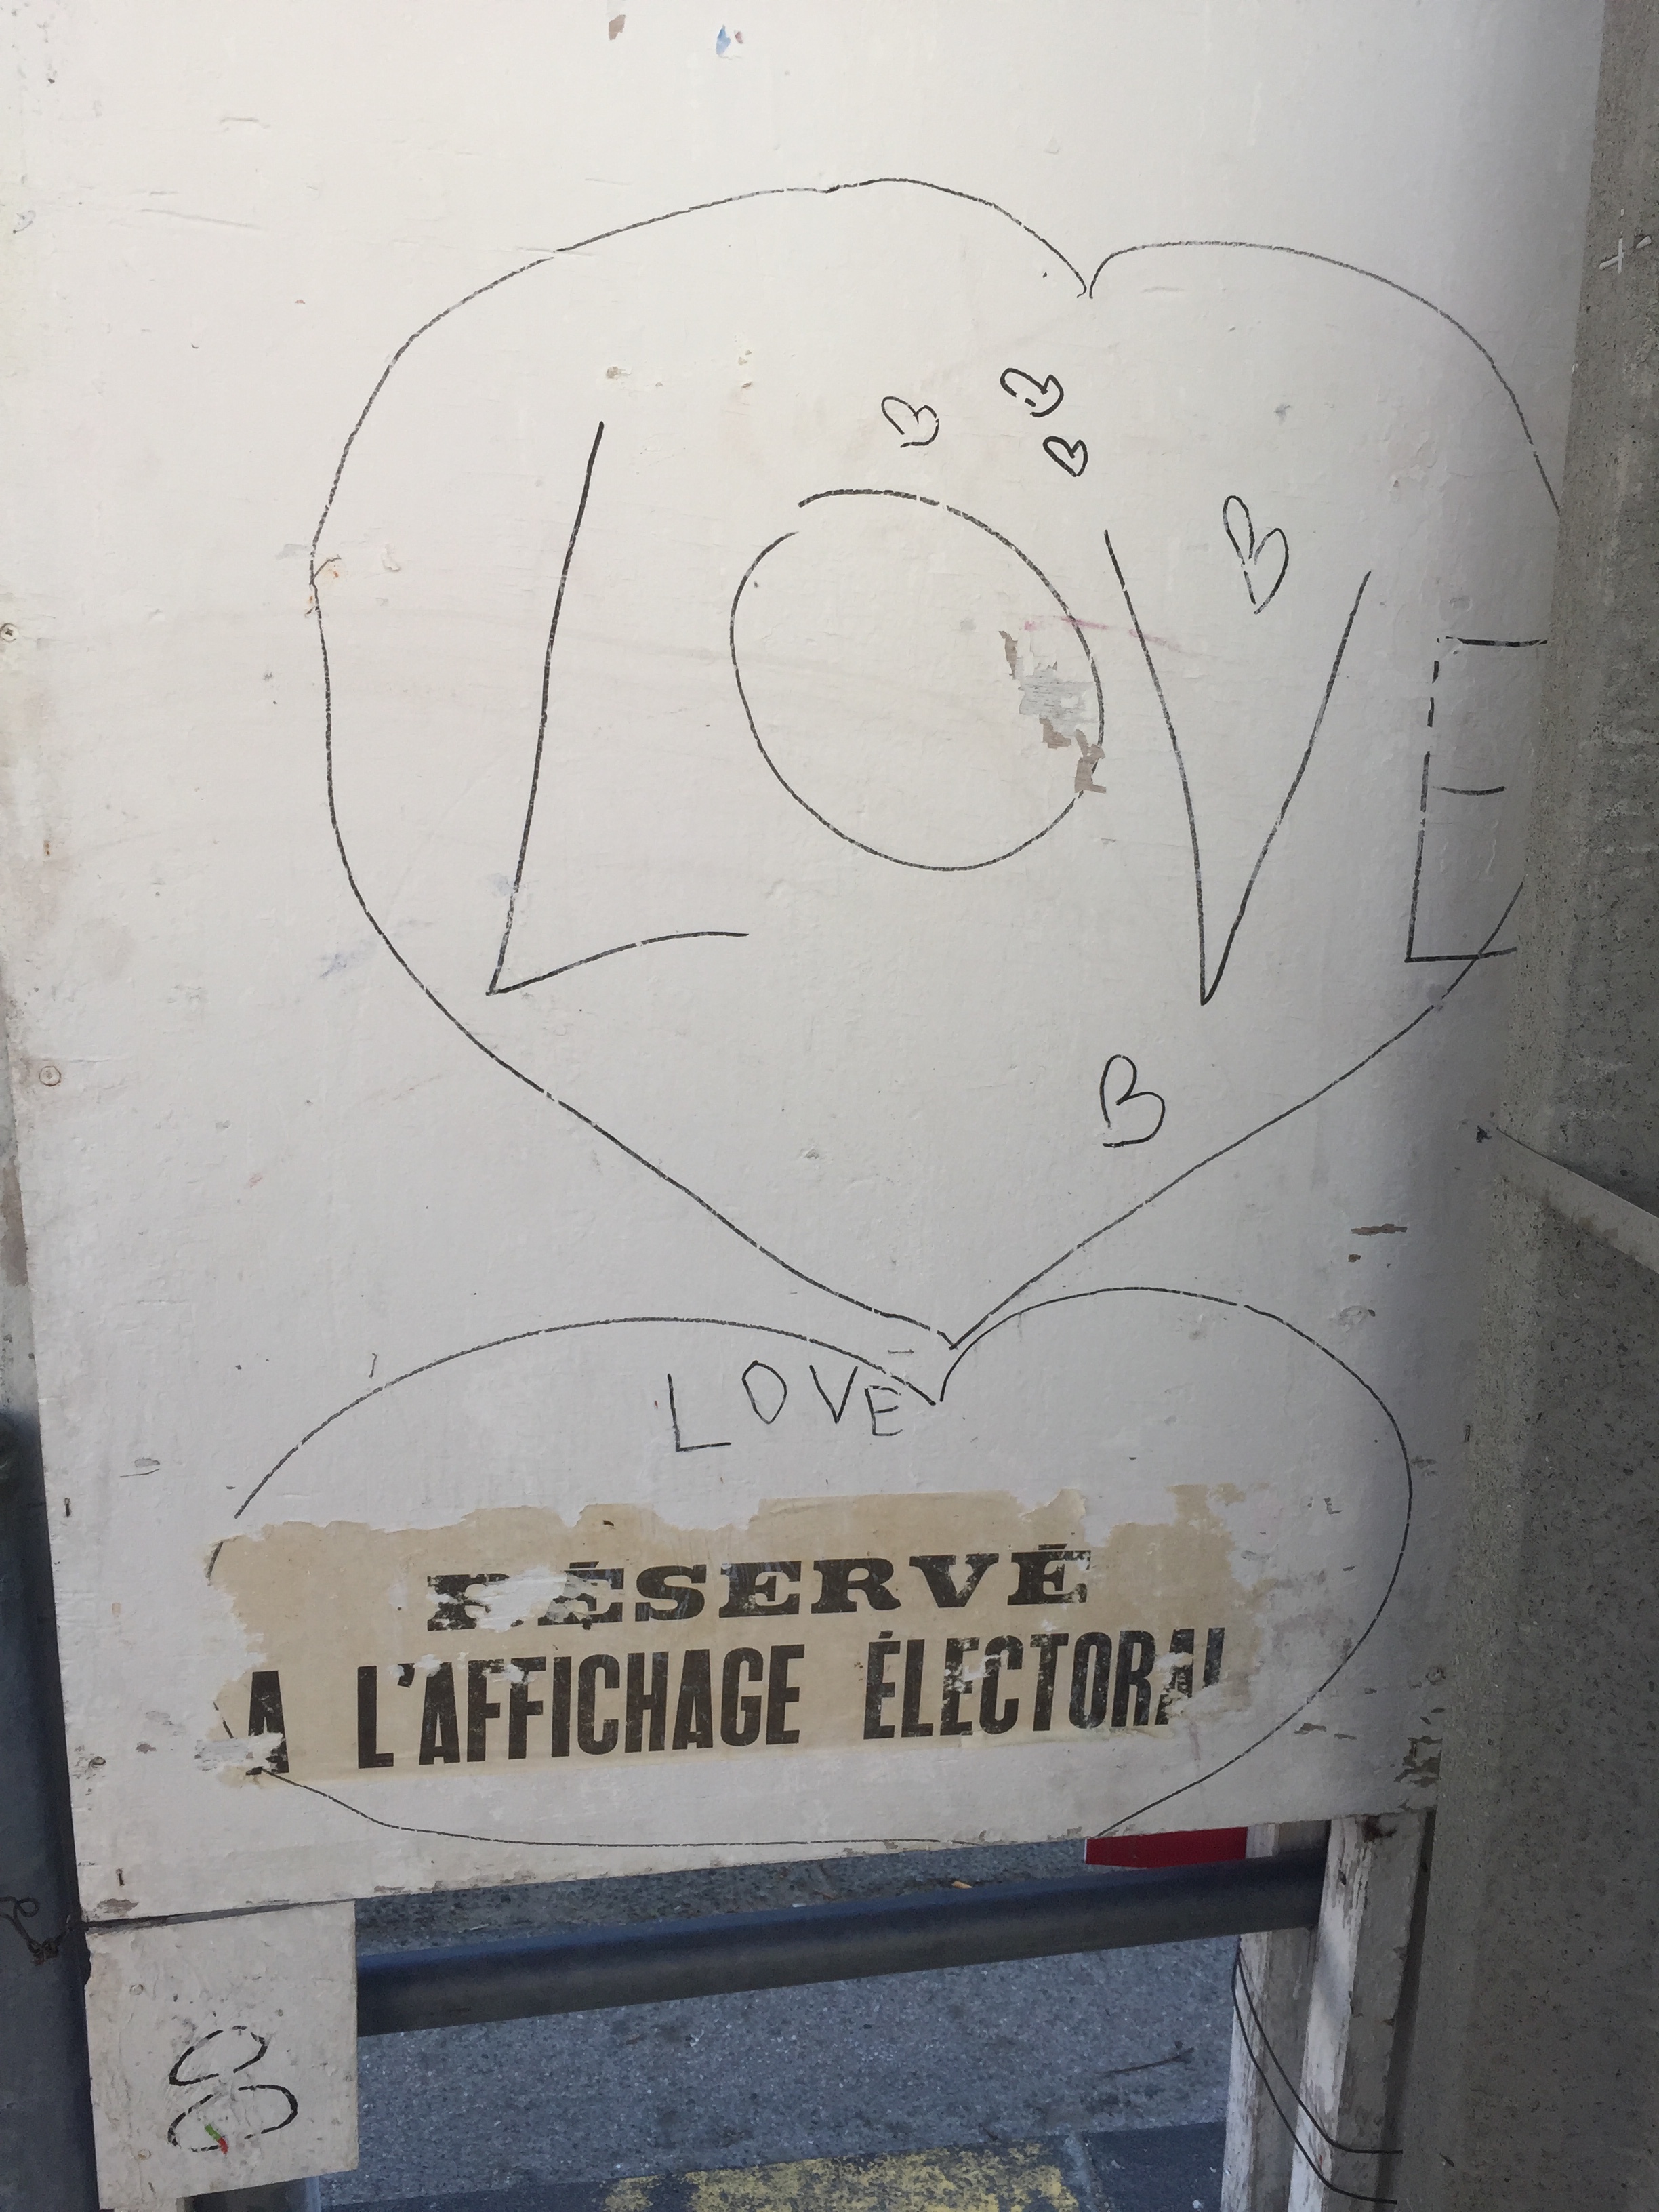 LOVE
LOVE
RÉSERVÉ
A L'AFFICHAGE ÉLECTORAL